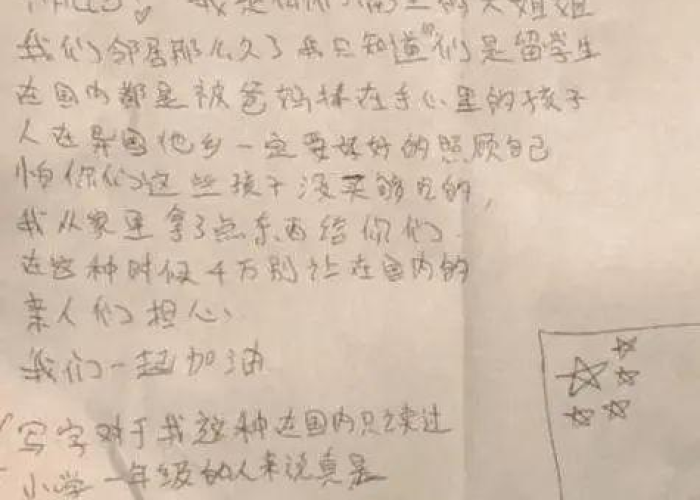 我是你们楼上的大姐姐
我们邻居那么久了我只知道你们是留学生
在国内都是被爸妈捧在手心里的孩子
人在异国他乡一定要好好的照顾自己
怕你们这些孩子没买够吃的,
我从家里拿了点东西给你们.
在这种时候千万别让在国内的
亲人们担心.
我们一起加油
(写字对于我这种在国内只读过
小学一年级的人来说真是